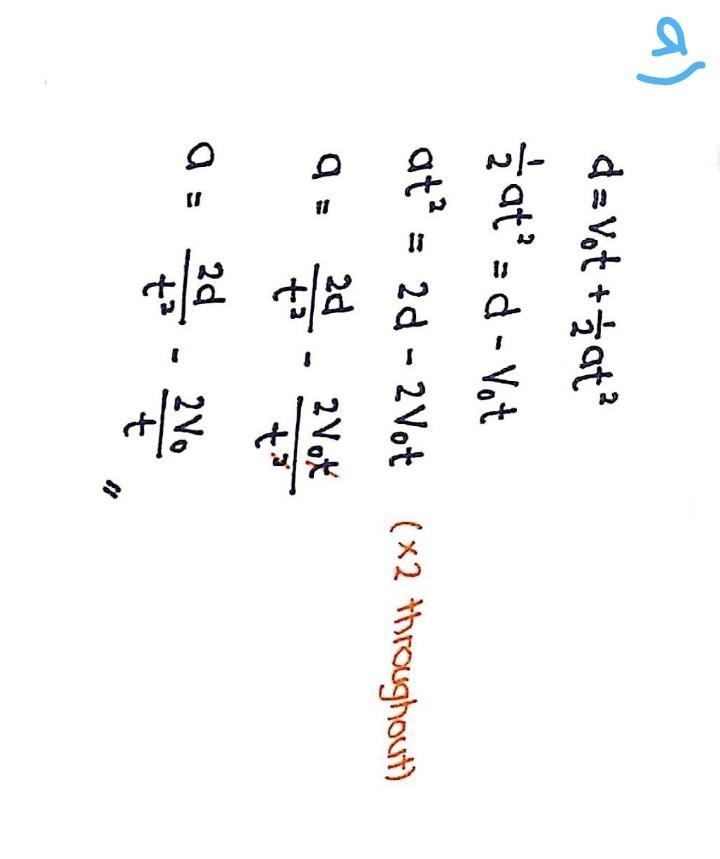 a)
d = V₀t + ½at²
½at² = d - V₀t
at² = 2d - 2V₀t (x2 throughout)
a = 2d/t² - 2V₀t/t²
a = 2d/t² - 2V₀/t "